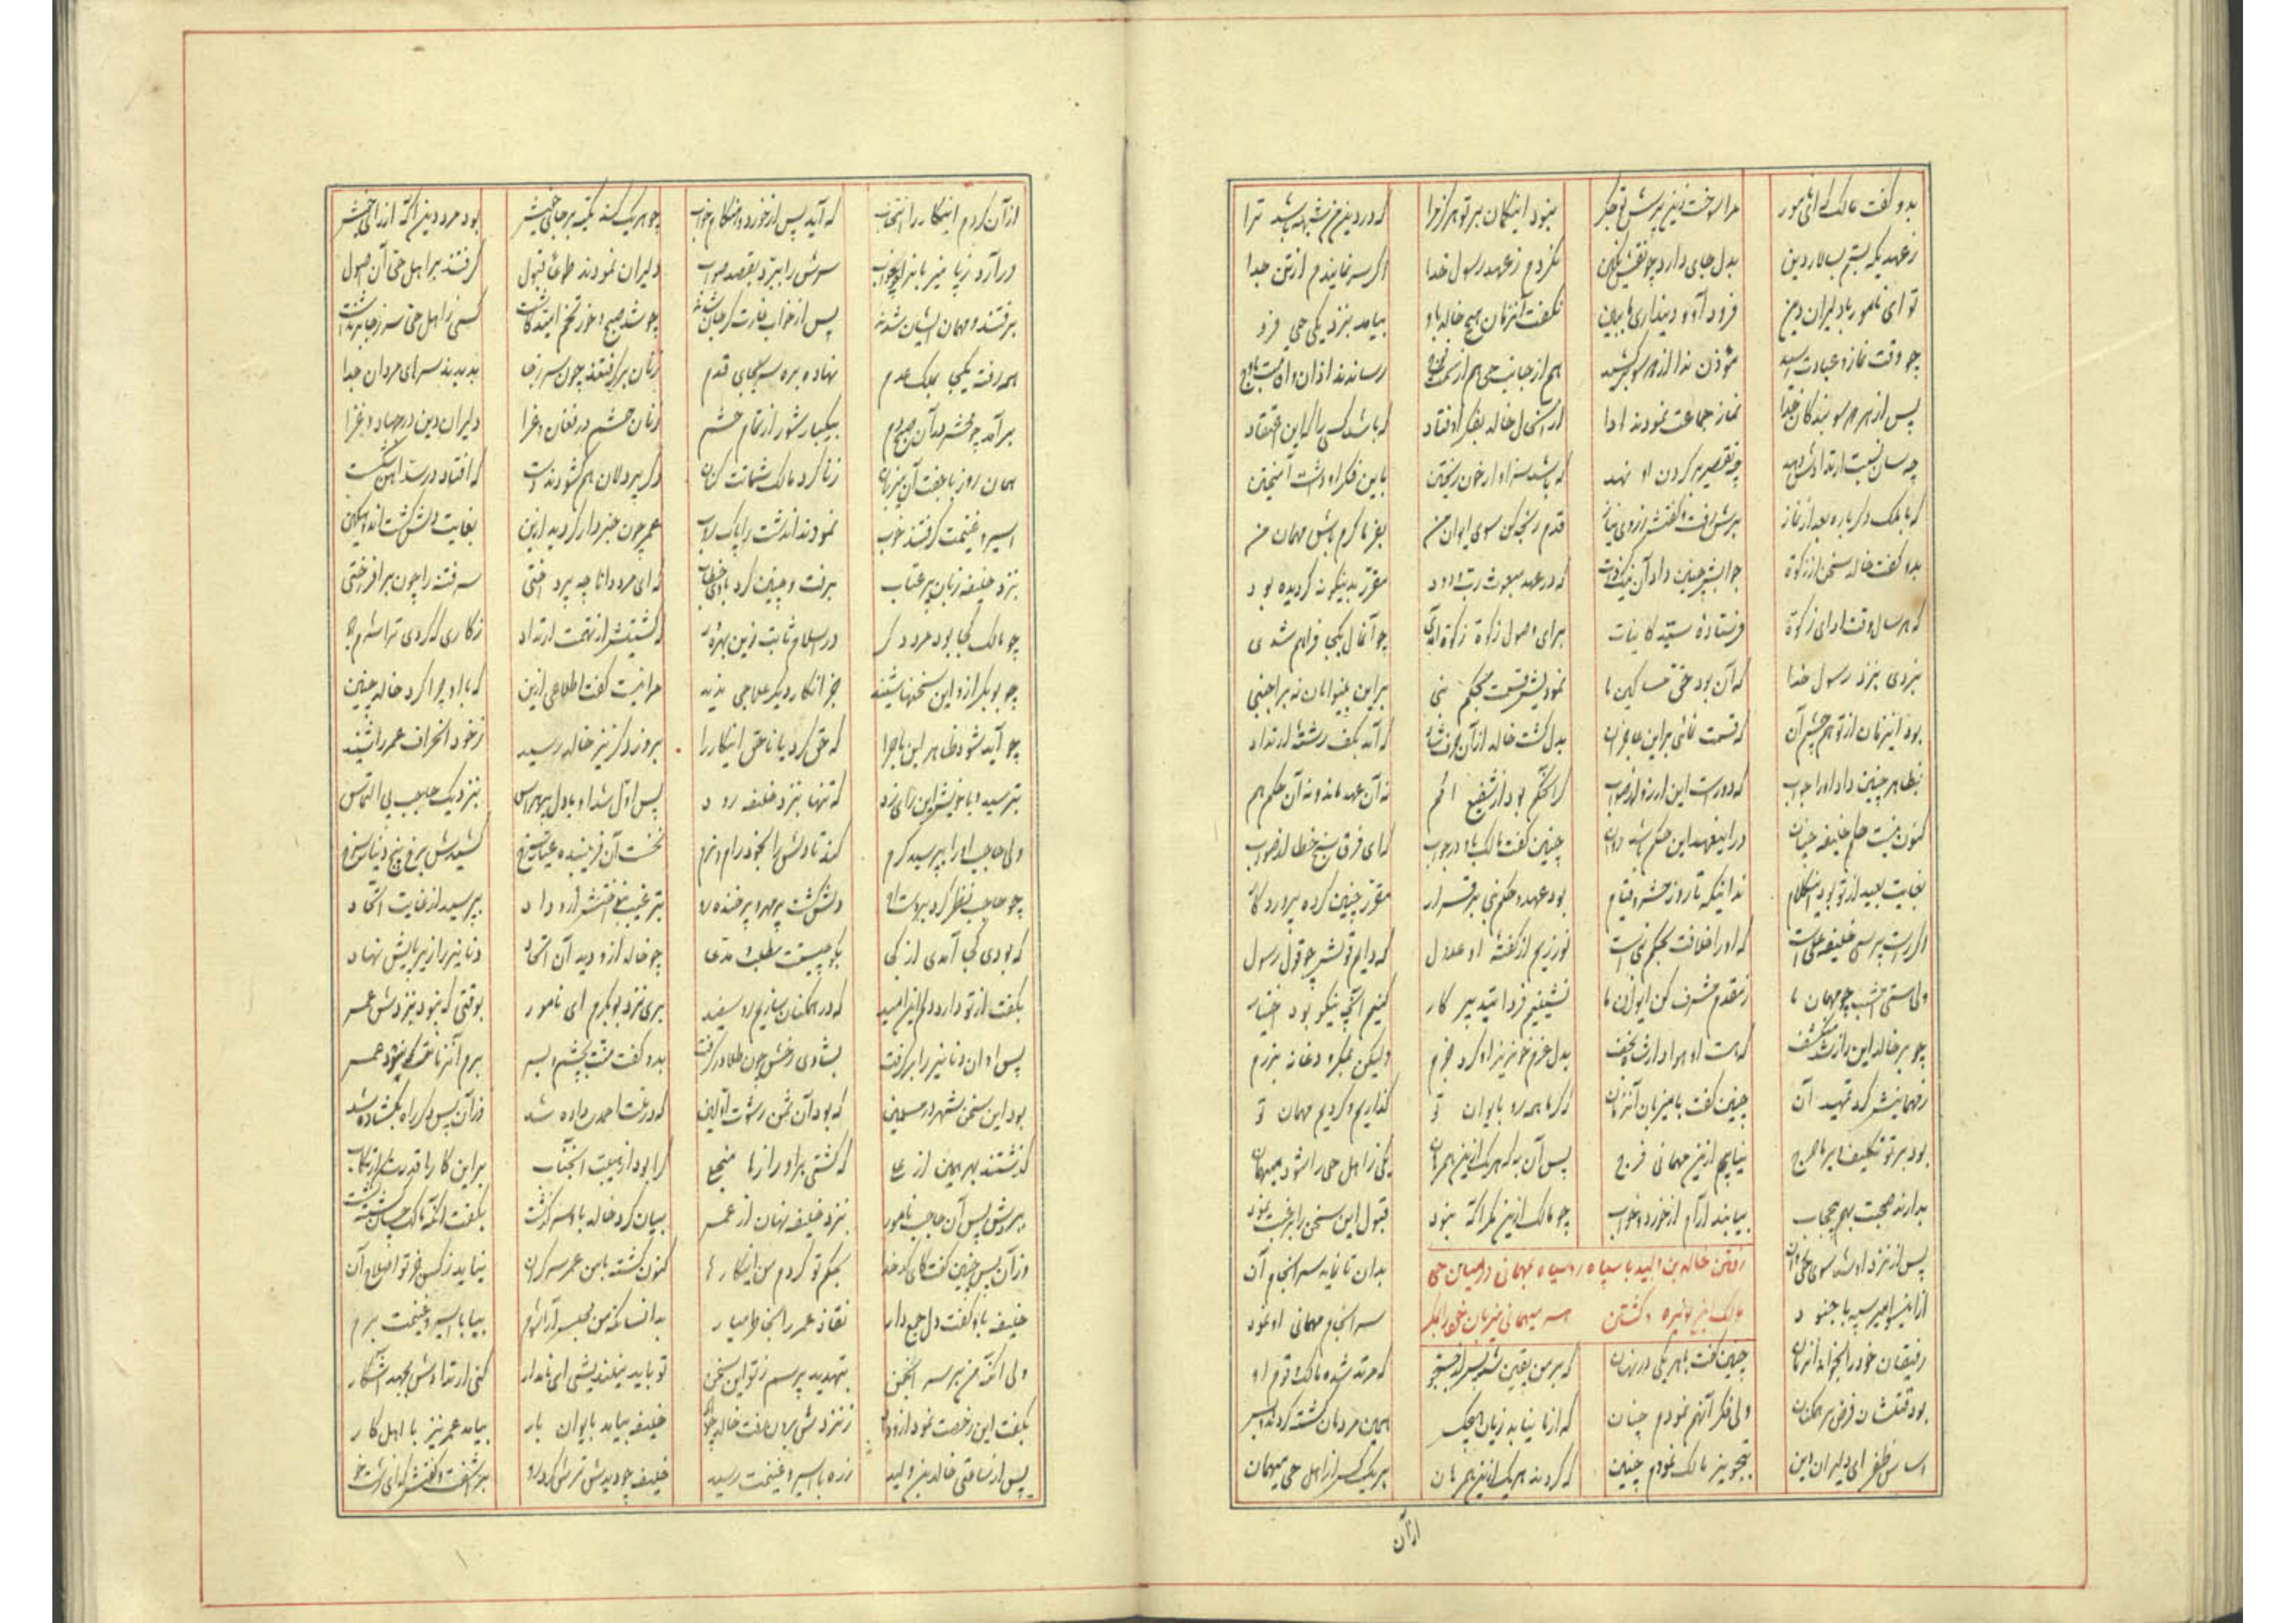 بدو گفت مالک که ای نامور مرا سوخت زین پرسش تو جگر نبود این گمان بر تو هرگز مرا که در دین من شبهه باشد ترا
ز عهدیکه بستم بسالار دین بدل جای دارد چو نقش نگین نگردم ز عهد رسول خدا اگر سر نمایندم از تن جدا
تو ای نامور با دلیران دین فرود آ و دینداری ما ببین نگفت آنزمان هیچ خالد باو بیامد بنزدیکی حی فرو
چو وقت نماز و عبادت رسید مؤذن ندا از هر سو کشید هم از جانب حی هم از سمت رساندند اذان
پس از هر دو سو بندگان خدا نماز جماعت نمودند ادا از آنحال خالد بفکر اوفتاد که باشد کسی را که این اعتقاد
چه سان نسبت ارتدادش دهد چه تقصیر بر گردن او نهد که باشد سزاوار خون ریختن باین فکر او داشت آمیختن
که مالک دگرباره بعد از نماز برش رفت و گفتش ز روی نیاز قدم رنجه کن سوی ایوان من بفرما کرم باش مهمان من
بدو گفت خالد سخن از زکوة جوابش چنین داد آن نیکذات که در عهد مبعوث رب ودود مقرر بدینگونه گردیده بود
که هر سال وقت ادای زکوة فرستاده سید کاینات برای وصول زکوة آمدی چو آنمال یکجا فراهم شدی
نبردی بنزد رسول خدا که آن بود حق مساکین ما نمودیش قسمت بحکم نبی براین بینوایان نه بر اجنبی
بود اینزمان از تو هم چشم آن که قسمت نمائی براین عاجزان بدل گشت خالد از آن حرف شاد که آمد بکف رشته ارتداد
بظاهر چنین داد او را جواب که دورست این آرزو از صواب که آن حکم بود از شفیع امم نه آن عهد ماند و نه آن حکم هم
کنون نیست حکم خلیفه چنان در اینعهد این حکم باشد روان چنین گفت مالک باو در جواب که ای فرق سنج خطا از صواب
بغایت بعید از تو بود این کلام ندانیکه تا روز حشر و قیام بود عهد و حکم نبی برقرار مقرر چنین کرده پروردگار
اگر راست پرسی خلیفه علی است که او را خلافت بحکم نبی است نورزیم از گفته او عدول که دانیم قولش چو قول رسول
ولی هستی امشب چو مهمان ما ز مقدم مشرف کن ایوان ما نشینیم فردا بتدبیر کار کنیم آنچه نیکو بود اختیار
چو بر خالد این راز شد منکشف که هست او هوادار شاه نجف بدل عزم خونریز او کرد جزم ولیکن بمکر و دغا نه برزم
ز مهمانیش کرد تمهید آن چنین گفت با میزبان آنزمان که گر ما همه رو بایوان تو گذاریم و گردیم مهمان تو
بود بر تو تکلیف و بر ما حرج نیابیم ازین مهمانی فرج پس آن به که هر یک ازین همرهان یکی ز اهل حی را شود میهمان
بدارند صحبت بهم بیحجاب بیابند آرام از خورد و خواب چو مالک ازین مکر آگه نبود قبول این سخن را برغبت نمود
پس از نزد او شد سوی حی روان بدان تا نماید سرانجام آن
رفتن خالد بن ولید با سپاه روسیاه بمهمانی در میان حی
ازینسو امیر سپه با جنود سرانجام مهمانی او نمود
مالک ابن نویره و کشتن همه میهمانی میزبان خود را بمکر
رفیقان خود را بخواند آنزمان چنین گفت با هر یکی در نهان که بر من یقین شد پس از جستجو که مرتد شده مالک و قوم او
بود قتلشان فرض بر همگنان ولی فکر آنهم نمودم چنان که از ما نیابد زیان هیچیک همین مردمان کشته گردند
اساس ظفر ای دلیران این بتجویز مالک نمودم چنین که گردند هر یک ازین همرهان بهر یک کس از اهل حی میهمان
از آن
از آن کردم اینکار را انتخاب که آید پس از خورد هنگام خواب چو هر یک کند تکیه بر جای خویش بود مرد دین آگه از رای خویش
درآرد ز پا میزبانرا بخواب سرش را ببرد بقصد صواب دلیران نمودند طاعت قبول گرفتند بر اهل حی آن
برفتند و مهمان ایشان شدند پس از خواب غارت گر جان شدند چو شد صبح کسی ز اهل حی سر ز جا برنداشت
همه رفته یکجا بملک عدم نهاده سر بجای قدم زنان برگرفتند چون سر ز جا بدیدند سرهای مردان جدا
برآمد چو محشر در آن صبحدم بیکبار شور از تمام حشم زنان حشم در فغان و عزا دلیران دین در جهاد و غزا
همان روز با جفت آن میزبان زنا کرد مالک شماتت کنان دگر پردلان هم گشودند دست که افتاد در سد آهن شکست
اسیر و غنیمت گرفتند خوب نمودند آندشت را پاک روب عمر چون خبردار گردید ازین بغایت دلش گشت اندوهگین
بنزد خلیفه زبان پر عتاب برفت و چنین کرد با وی خطاب که ای مرد دانا چه پرداختی سر فتنه را چون برافراختی
چو مالک کجا بود مرد دگر در اسلام ثابت زین بهره ور که کشتیش از تهمت ارتداد ز کاری که کردی ترا شرم باد
چو بوبکر ازو این سخنها شنید جز انکار دیگر علاجی ندید مرا نیست گفت اطلاعی ازین که با او چرا کرد خالد چنین
چو آید شود ظاهر این ماجرا که حق کرد یا ناحق اینکار را بروز دگر نیز خالد رسید ز خود انحراف عمر را شنید
بترسید و با خویش این رای زد که تنها بنزد خلیفه رود پس اول شد او با دل پرهراس بنزدیک حاجب پی التماس
ولی حاجب او را بپرسید گرم کند تا دلش را بخود رام و نرم نخست آن فریبنده کشیدش برو پنج دینار سرخ
چو حاجب نظر کرد بر دست او دلش گشت پر مهر و پر خنده رو بترغیب بپرسید از غایت اتحاد
که بودی کجا آمدی از کجا بگو چیست مطلب و مدعا چو خالد ازو دید آن اتحاد دنانیر را زیر پایش نهاد
بگفت از تو دارد دلم این امید که در همگنان سازیم رو سفید بری نزد بوبکرم ای نامور بوقتی که نبود بنزدش عمر
پس او آن دنانیر را برگرفت بشادی رخش چون طلا درگرفت بدو گفت منت بچشم و بسر برم آنزمانت که نبود عمر
بود این سخن شهره در مسلمین که بود آن ثمن رشوت اولین که در ملت احمدی داده شد وز آن پس دگر راه بگشاده شد
گذشتند بهر همین از علی که گشتی براو رازها منجلی کرا بود از هیبت آنجناب براین کار را قدرت ارتکاب
ببردش پس آن حاجب نامور بنزد خلیفه نهان از عمر بیان کرد خالد باو سرگذشت بگفت آنکه مالک چسان کشته گشت
وز آن پس چنین گفت کای کدخدا بحکم تو کردم من اینکارها کنون گشته با من عمر سرگران نیاید ز کس جز تو اصلاح آن
خلیفه باو گفت دل جمع دار نقار عمر را بخاطر میار بیا با اسیر و غنیمت برم
ولی آنکه من بر سر انجمن بتهدید پرسم ز تو این سخن تو باید نیندیشی ای نامدار کنی ارتدادش بجهد آشکار
بگفت این و رخصت نمود از ز نزدش برون رفت خالد خلیفه بیامد بایوان بار بیامد عمر نیز با اهل کار
پس از ساعتی خالد بن ولید ز ره با اسیر و غنیمت رسید خلیفه چو دیدش ترش کرد رو برآشفت و گفتش که ای زشتخو